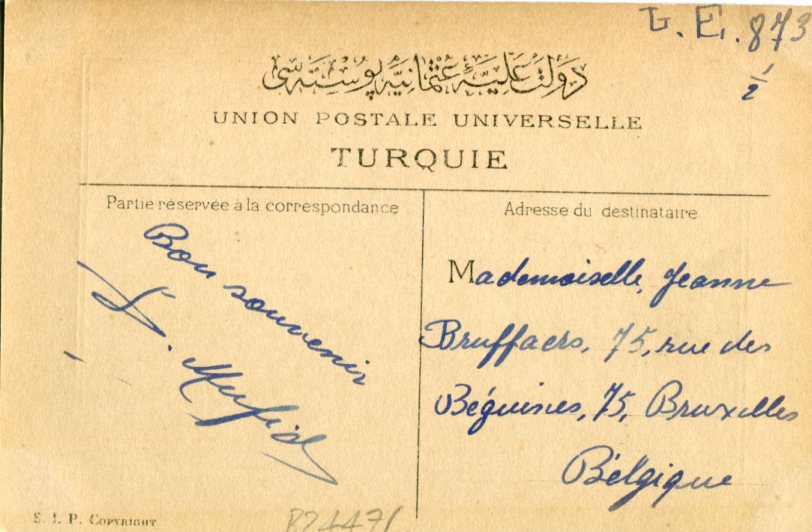 G. E. 873
1/2
دولت عليۀ عثمانيه پوسته سى
UNION POSTALE UNIVERSELLE
TURQUIE
Partie réservée à la correspondance
Bon souvenir
Mufid
Adresse du destinataire
Mademoiselle, Jeanne
Bruffaers, 75, rue des
Béguines, 75, Bruxelles
Bélgique
S. I. P. COPYRIGHT